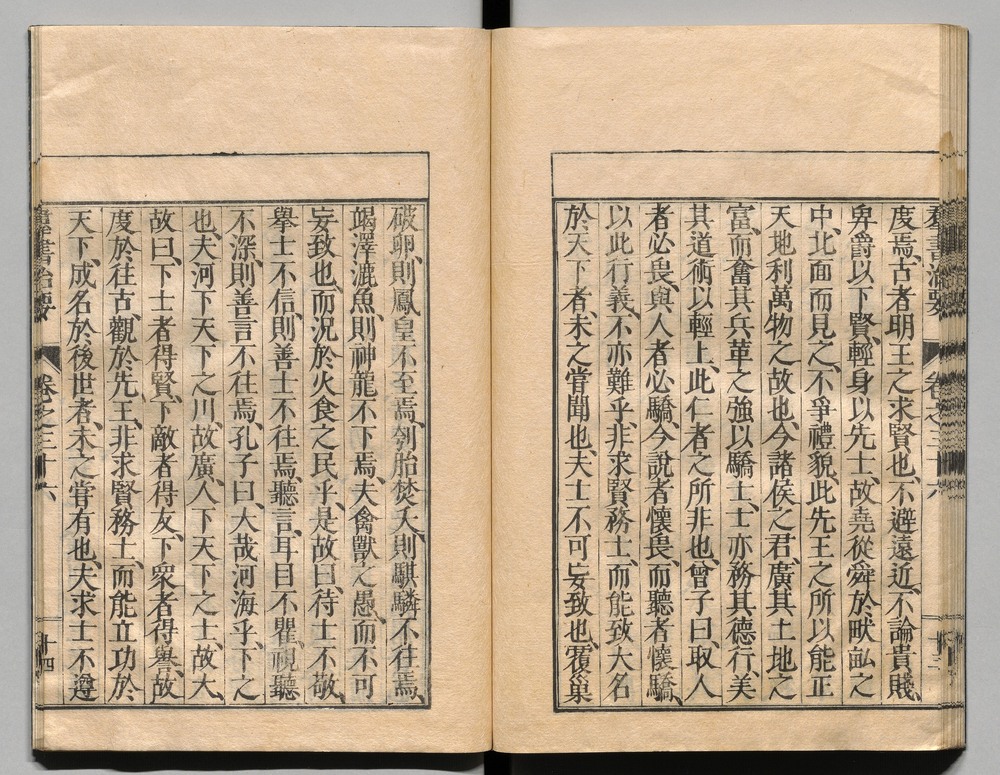 羣書治要 卷之三十六 十三
度焉、古者明王之求賢也、不避遠近、不論貴賤、
卑爵以下賢、輕身以先士、故堯從舜於畎畝之
中、北面而見之、不爭禮貌、此先王之所以能正
天地利萬物之故也、今諸侯之君、廣其土地之
富、而奮其兵革之強以驕士、士亦務其德行、美
其道術以輕上、此仁者之所非也、曾子曰、取人
者必畏、與人者必驕、今說者懷畏、而聽者懷驕、
以此行義、不亦難乎、非求賢務士、而能致大名
於天下者、未之甞聞也、夫士不可妄致也、覆巢
破卵、則鳳皇不至焉、刳胎焚夭、則騏驎不往焉、
竭澤漉魚、則神龍不下焉、夫禽獸之愚、而不可
妄致也、而況於火食之民乎、是故曰、待士不敬、
舉士不信、則善士不往焉、聽言、耳目不瞿、視聽
不深、則善言不往焉、孔子曰、大哉河海乎、下之
也、夫河下天下之川、故廣、人下天下之士、故大、
故曰、下士者得賢、下敵者得友、下衆者得譽、故
度於往古、觀於先王、非求賢務士、而能立功於
天下、成名於後世者、未之甞有也、夫求士不遵
羣書治要 卷之三十六 十四